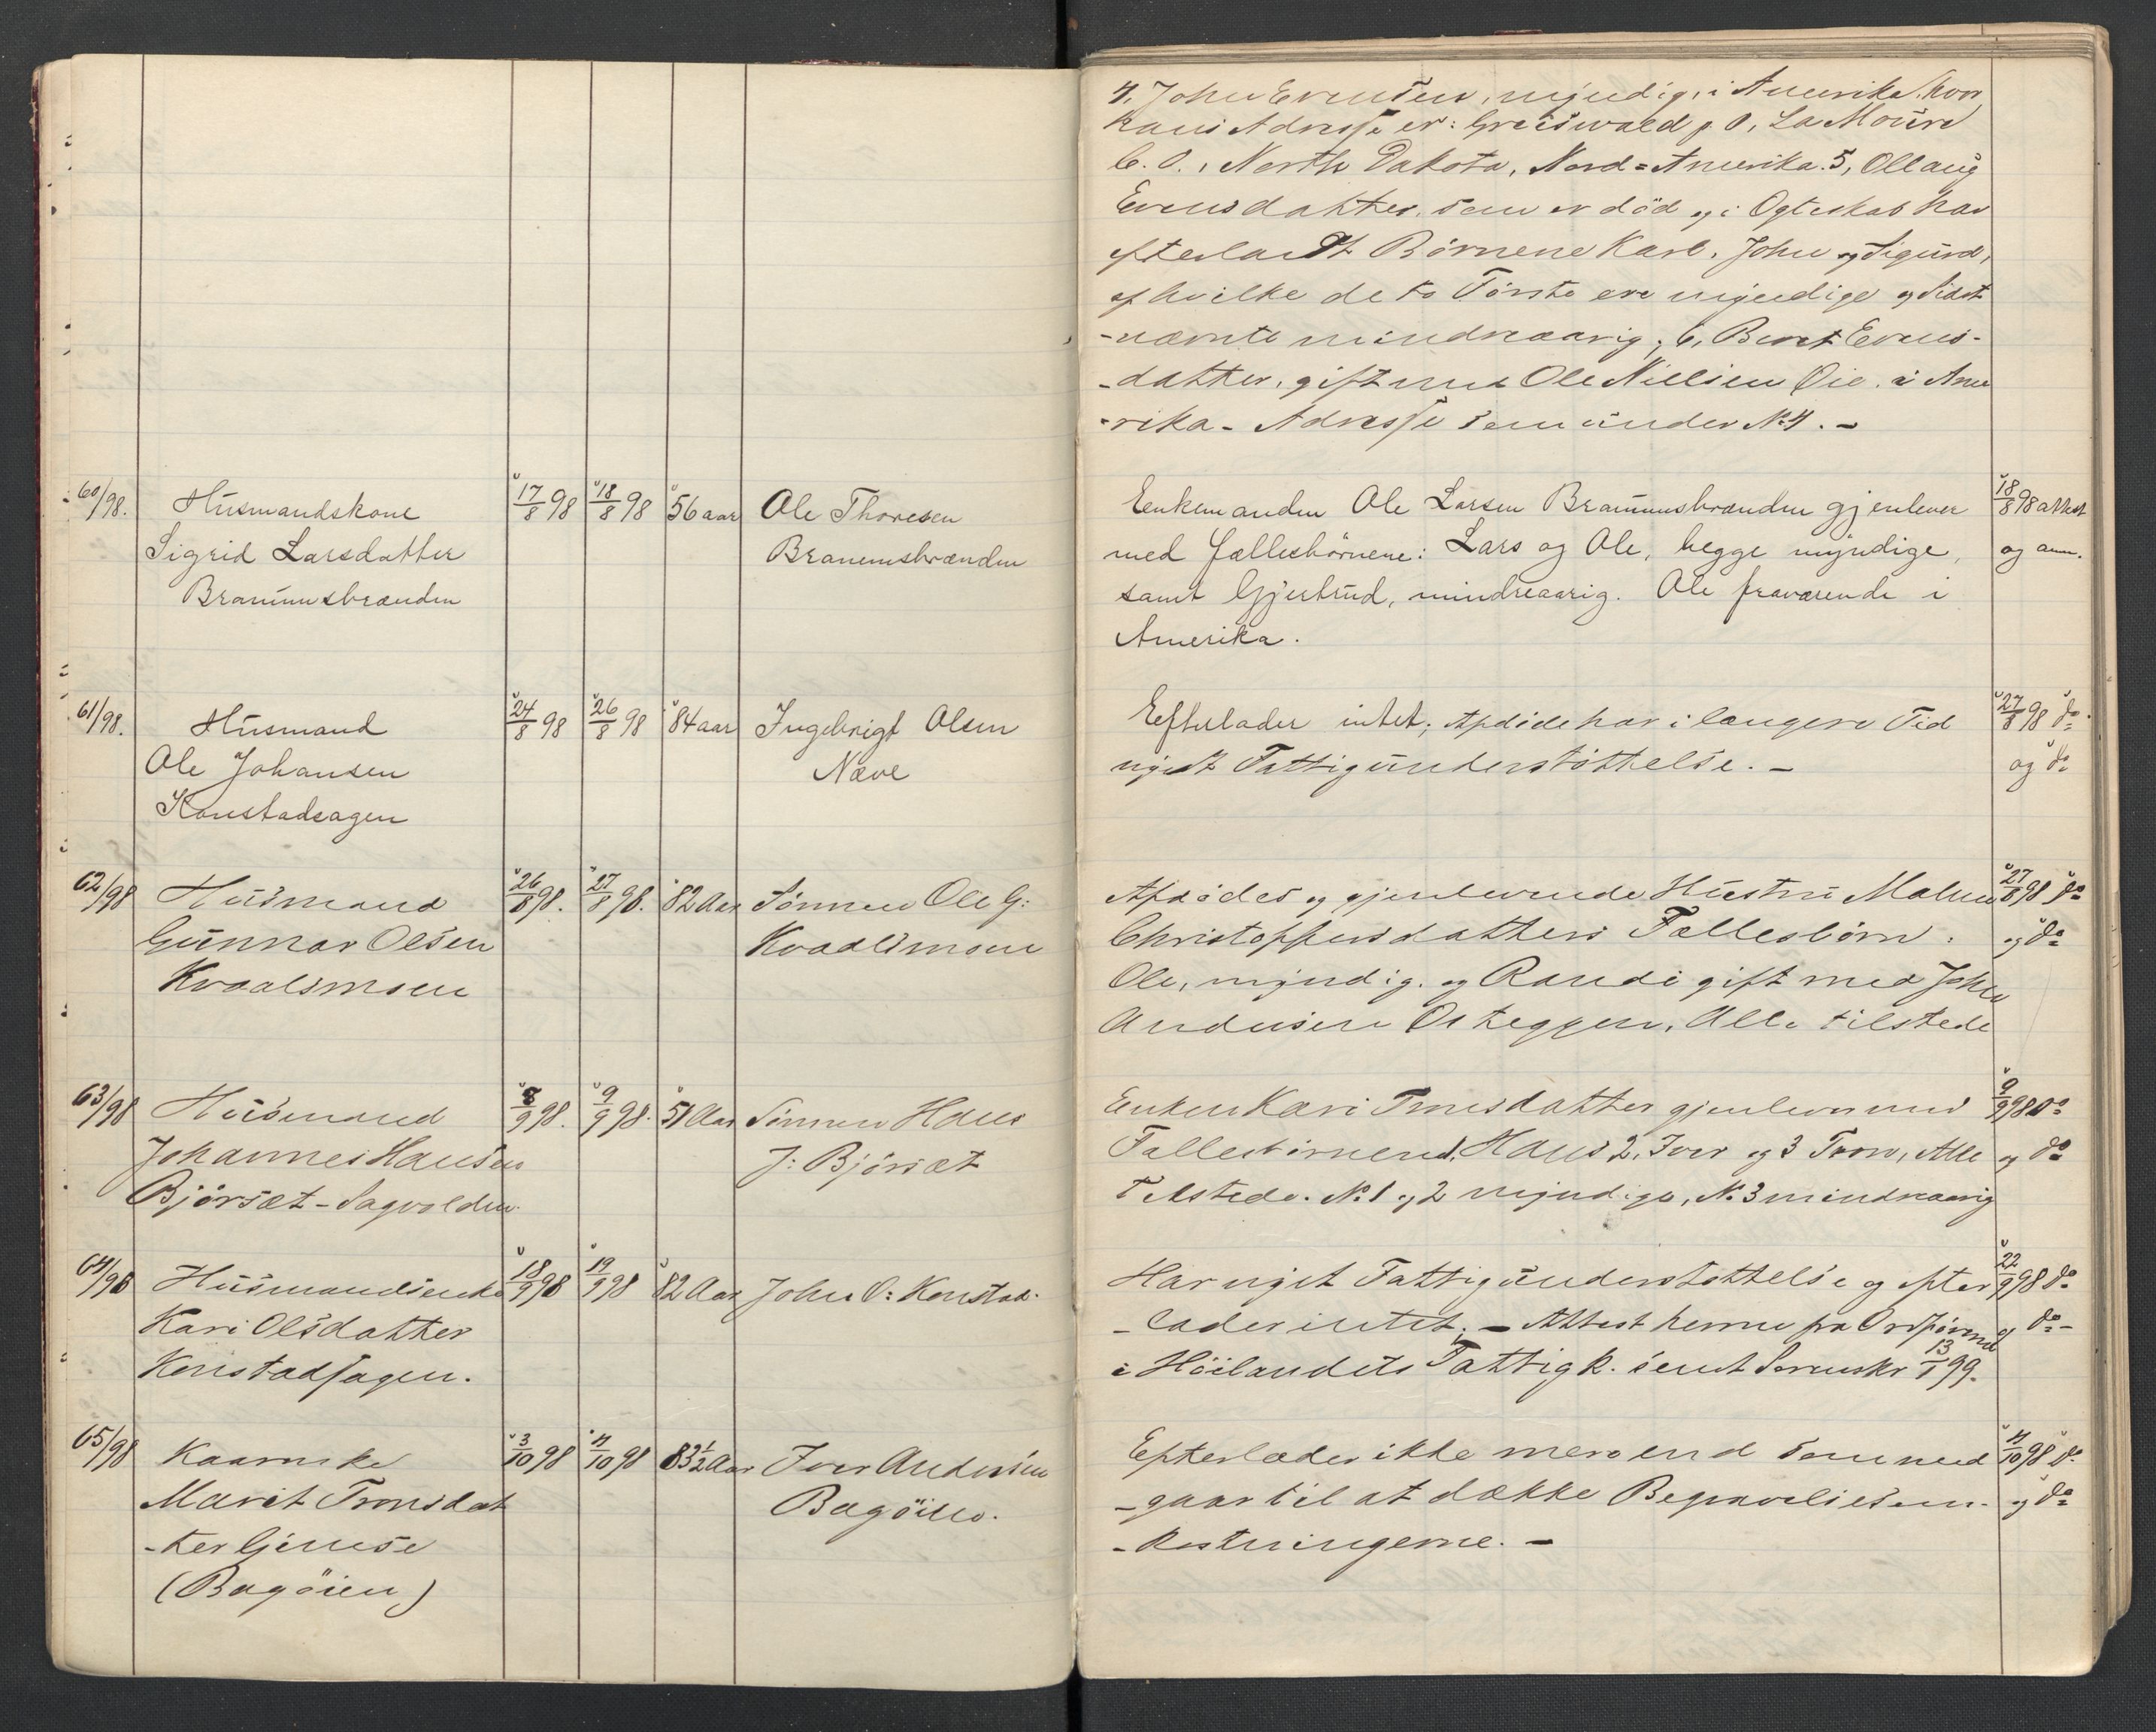 4, John Evensen, myndig, i Amerika, hvor
hans Adresse er: Greiswald p. O, La Moure
C. O., North Dakota, Nord=Amerika. 5, Ollaug
Evensdatter, som er död og i Ægteskab har
efterladt Börnene Karl, John og Sigurd,
af hvilke de to Förste ere myndige og Sidst
-nævnte mindreaarig; 6, Beret Evens-
-datter, gift med Ole Nielsen Öie, i Ame
-rika - Adresse som under No 4. -
60/98.
Husmandskone
Sigrid Larsdatter
17/8 98
18/8 98
56 aar
Ole Thoresen
Enkemanden Ole Larsen gjenlever
med Fællesbörnene: Lars og Ole, begge myndige,
samt Gjertrud, mindreaarig. Ole fraværende i
Amerika.
18/8 98 attest
og ann.
61/98.
Husmand
Ole Johansen
Konstadsagen
24/8 98
26/8 98
84 aar
Ingebrigt Olsen
Næve
Efterlader intet; Afdöde har i længere Tid
nydt Fattigunderstöttelse. -
27/8 98 do
og do
62/98
Husmand
Gunnar Olsen
Kvaalsmoen
26/8 98.
27/8 98.
82 Aar
Sönnen Ole G:
Kvaalsmoen
Afdödes og gjenlevende Hustru Malene
Christoffersdatters Fællesbörn:
Ole, myndig, og Randi gift med John
Andersen Alle tilstede
27/8 98 do
og do
63/98
Husmand
Johannes Hansen
Björsæt-Sagvolden
8/9 98.
9/9 98.
51 Aar
Sönnen Hans
J: Björsæt
Enken Kari Tronsdatter gjenlever med
Fællesbörnene 1, Hans 2, Iver og 3 Tron, Alle
Tilstede. No 1 og 2 myndige, No 3 mindreaarig
9/9 98 do
og do
64/98
Husmandsenke
Kari Olsdatter
Konstadsagen.
18/9 98
19/9 98
82 Aar
John O: Konstad.
Har nydt Fattigunderstöttelse og efter
-lader intet. - Attest herom fra Ordförend
i Höilandets Fattigk. sendt Sorenskr 13/1 99.
22/9 98 do
og do -
65/98
Kaarenke
Marit Tronsdat
-ter Gimse
(Bagöien)
3/10 98
4/10 98
83 1/2 Aar
Iver Andersen
Bagöien.
Efterlader ikke mere end som med
-gaar til at dække Begravelsesom-
-kostningerne. -
4/10 98 do
og do